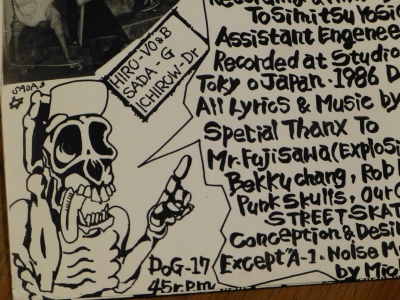 SADA.S
HIRO-VO&B
SADA-G
ICHIROW-Dr
To Simitsu Yosi
Assistant Engeneer
Recorded at Studio
Tokyo Japan. 1986 D
All Lyrics & Music by
Spetial Thanx To
Mr. Fujisawa (Explosi
Bekkuchang, Rob
Punk Skulls, Our
STREET SKAT
Conception & Desi
Except "A-1. Noise M
by Mic
DOG-17
45r.p.m